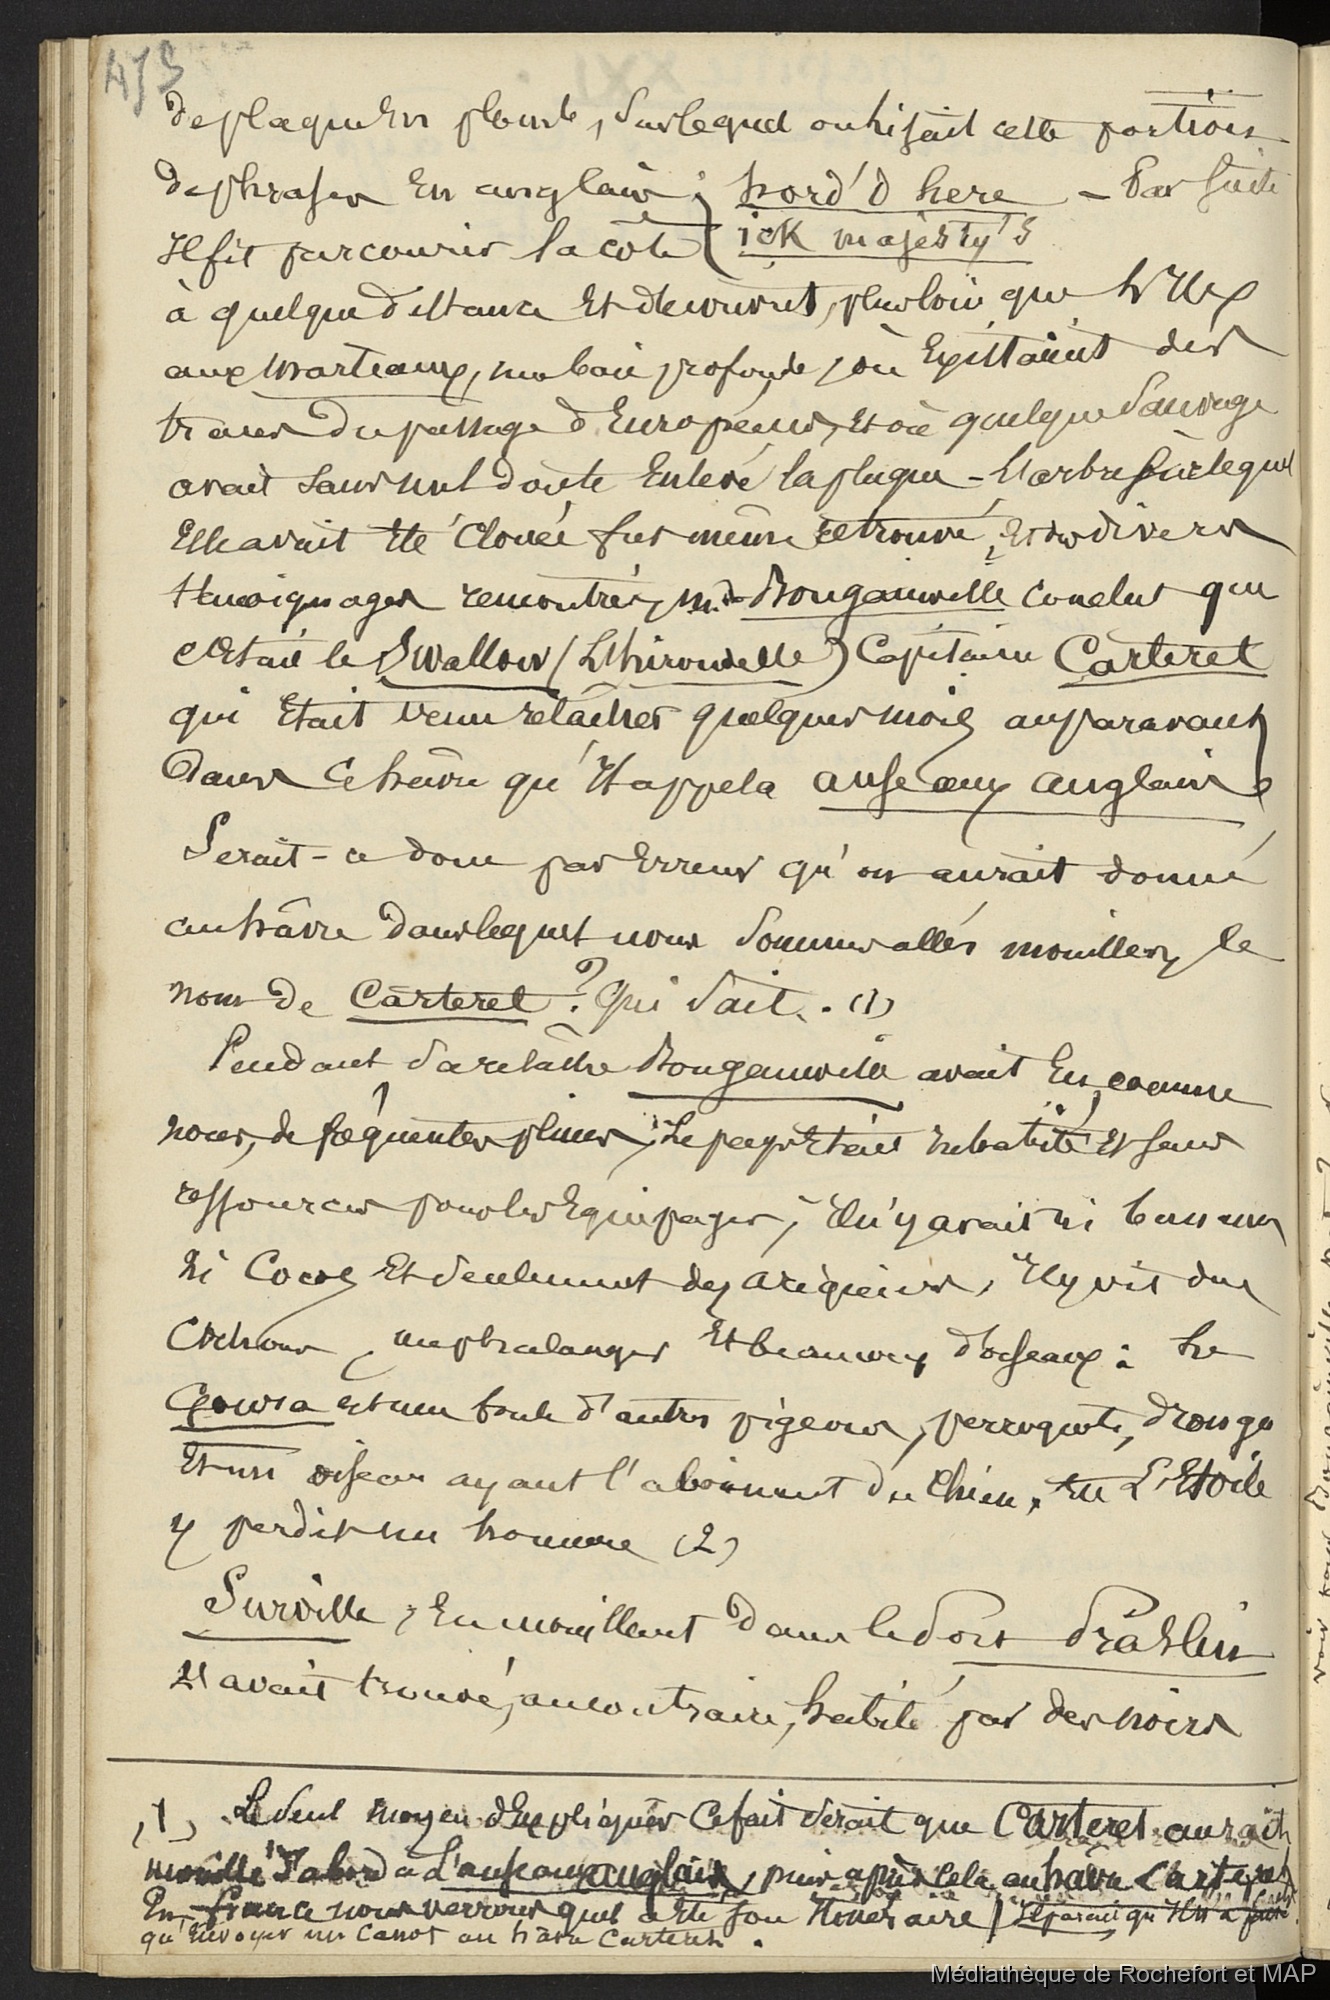 473
de plaque en plomb, sur lequel on lisait cette portion
de phrases en anglais ; hord'd here - Par suite
Il fit parcourir la côte ( ick majesty's
à quelque distance et découvrit, plus loin que l'Ile
aux marteaux, une baie profonde, où Existaient des
traces du passage d'Européens, et où quelque Sauvage
avait sans nul doute Enlevé la plaque - L'arbre sur lequel
Elle avait été clouée fut même retrouvé, Et des divers
témoignages rencontrés, Mr de Bougainville conclut que
c'était le Swallow (L'hirondelle) Capitaine Carteret
qui était venu relâcher quelques mois auparavant
dans ce hâvre qu'il appela anse aux anglais
Serait-ce donc par Erreur qu'on aurait donné
au hâvre dans lequel nous sommes allés mouiller, le
nom de Carteret ? Qui sait. . (1)
Pendant sa relâche Bougainville avait Eu, comme
nous, de fréquentes pluies, Le pays était inhabité et sans
ressources pour les Equipages, Il n'y avait ni bananes
ni Cocos Et seulement des aréquiers, Il y vit des
Cochons, une phalanges Et beaucoup d'oiseaux : Le
Goura et une foule d'autres pigeons, perroquets, drongo
Et un oiseau ayant l'aboiement du chien. L'Etoile
y perdit un homme (2)
Surville, En mouillant dans le Port Praslin
L'avait trouvé, au contraire, habité par des noirs
(1) Le seul moyen d'Expliquer ce fait serait que Carteret aurait
mouillé d'abord à L'anse aux anglais, puis après cela au havre Carteret
En france nous verrons quel a été son Itinéraire / Il parait qu'il n'a fait
qu'Envoyer un Canot au hâvre Carteret .
Médiathèque de Rochefort et MAP